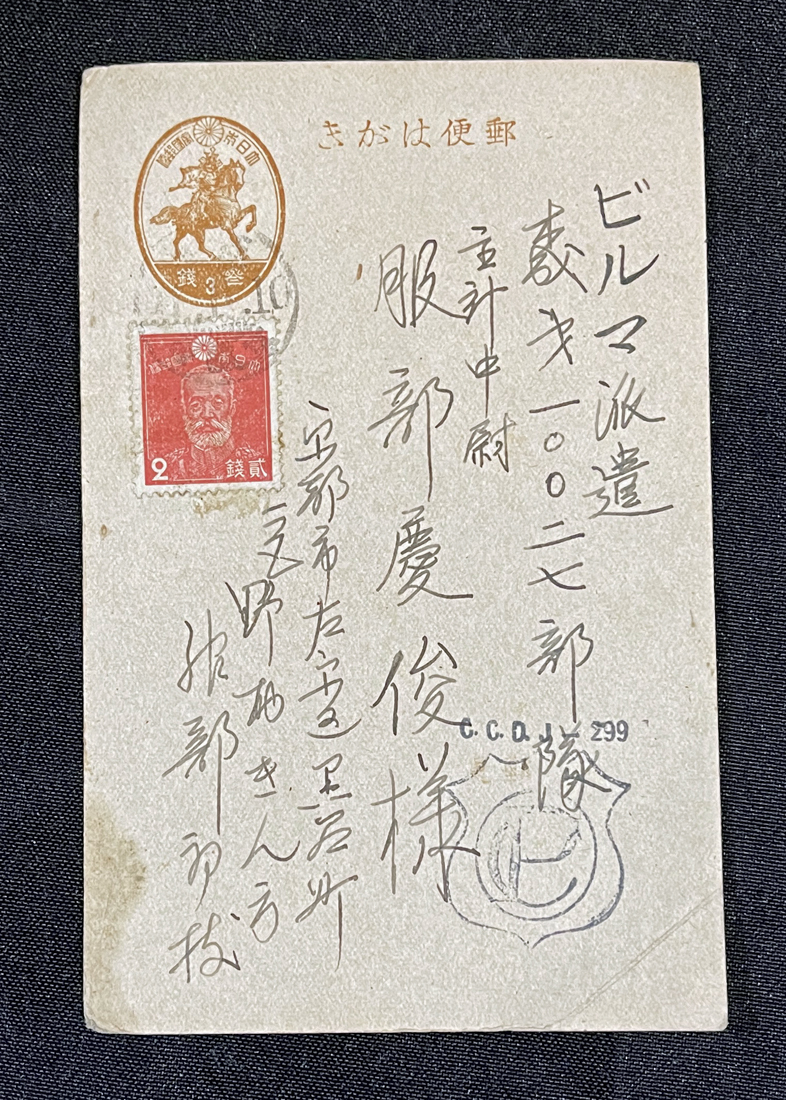 郵便はがき
大日本帝國郵便
叁3錢
大日本帝國郵便
2 貳錢
ビルマ派遣
森才一〇〇二七部隊
主計中尉
服部慶俊様
京都市左京区黒谷町
野きん方
服部初枝
C.C.D. J - 299